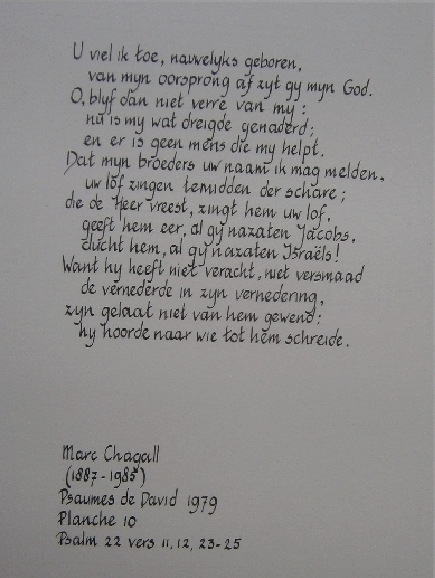 U viel ik toe, nauwelyks geboren,
van myn oorsprong af zyt gy myn God.
O, blyf dan niet verre van my:
nu is my wat dreigde genaderd;
en er is geen mens die my helpt.
Dat myn broeders uw naam ik mag melden,
uw lof zingen temidden der schare;
die de Heer vreest, zingt hem uw lof,
geeft hem eer, al gy nazaten Jacobs,
ducht hem, al gy nazaten Israëls!
Want hy heeft niet veracht, niet versmaad
de vernederde in zyn vernedering,
zyn gelaat niet van hem gewend;
hy hoorde naar wie tot hem schreide.
Marc Chagall
(1887-1985)
Psaumes de David 1979
Planche 10
Psalm 22 vers 11, 12, 23-25